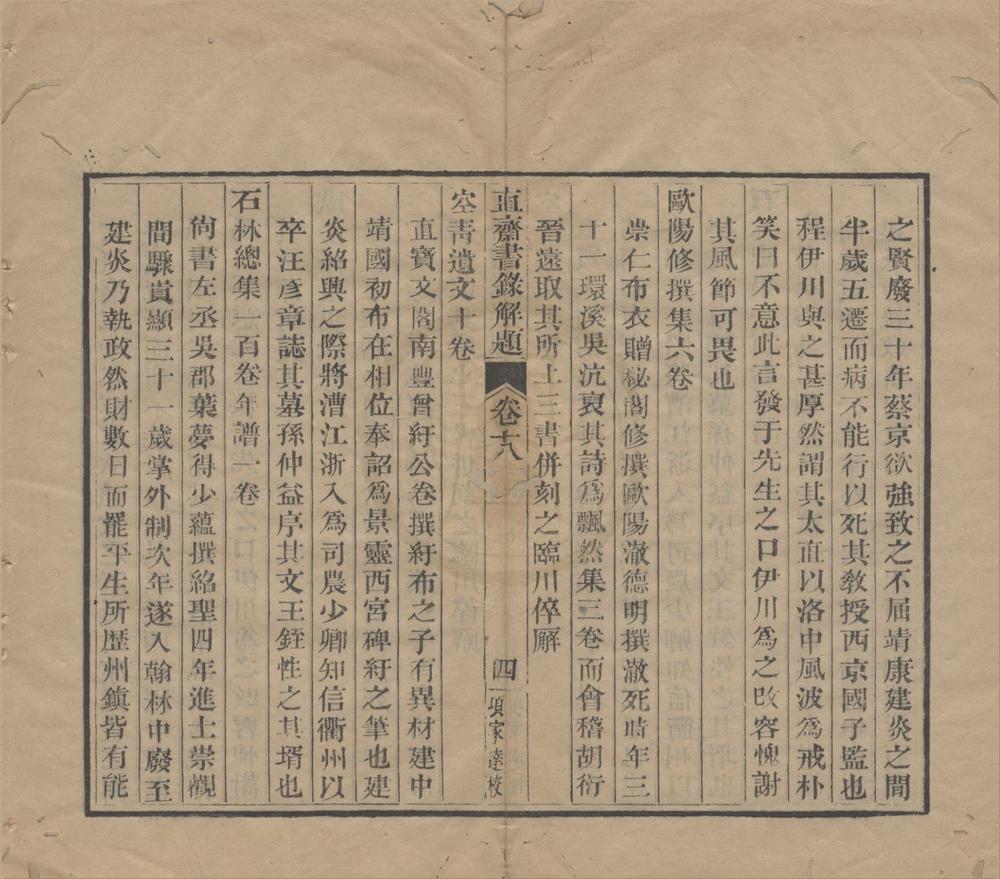 之賢廢三十年蔡京欲強致之不屈靖康建炎之間
半歲五遷而病不能行以死其教授西京國子監也
程伊川與之甚厚然謂其太直以洛中風波爲戒朴
笑曰不意此言發于先生之口伊川爲之改容愧謝
其風節可畏也
歐陽修撰集六卷
崇仁布衣贈秘閣修撰歐陽澈德明撰澈死時年三
十一環溪吳沆裒其詩爲飄然集三卷而會稽胡衍
晉遠取其所上三書併刻之臨川倅廨
直齋書錄解題
卷十八
四
項家達校
空青遺文十卷
直寶文閣南豐曾紆公卷撰紆布之子有異材建中
靖國初布在相位奉詔爲景靈西宮碑紆之筆也建
炎紹興之際將漕江浙入爲司農少卿知信衢州以
卒汪彥章誌其墓孫仲益序其文王銍性之其壻也
石林總集一百卷年譜一卷
尙書左丞吳郡葉夢得少蘊撰紹聖四年進士崇觀
間驟貴顯三十一歲掌外制次年遂入翰林中廢至
建炎乃執政然財數日而罷平生所歷州鎮皆有能